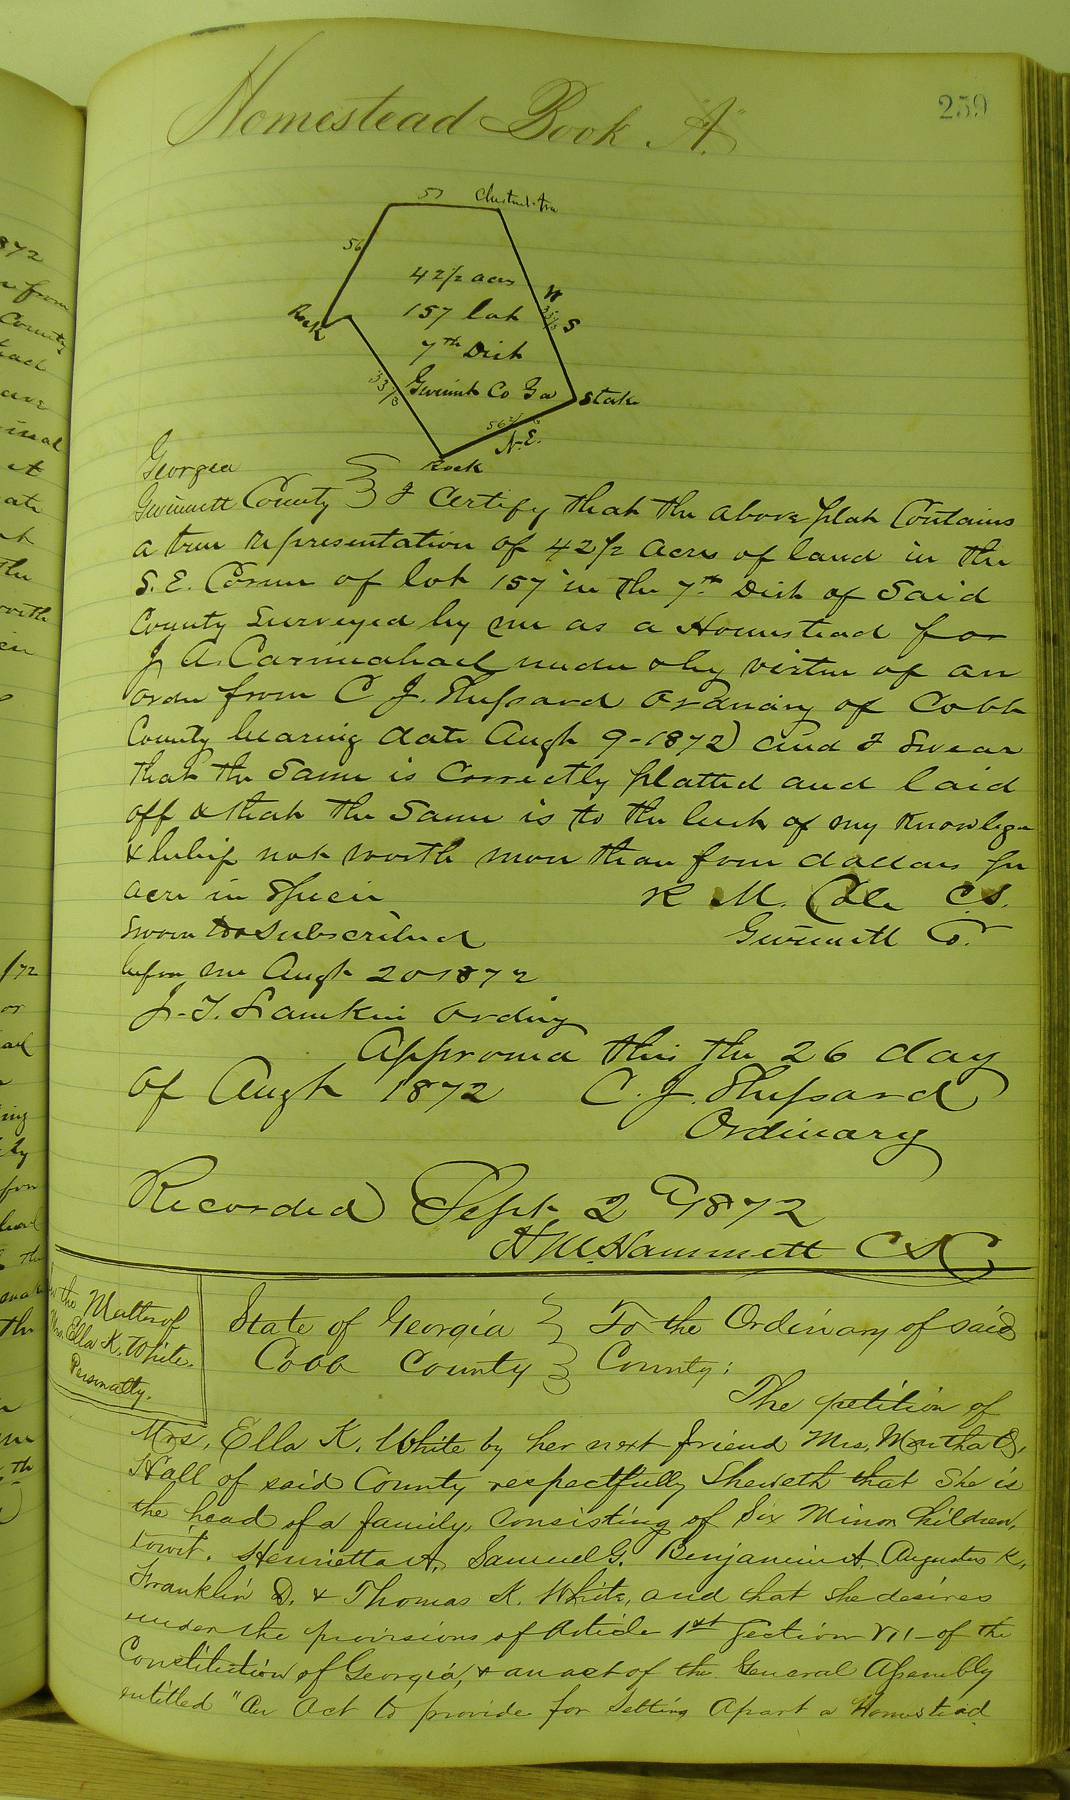 Homestead Book "A."
259
57 Chestnut tree
56
42 1/2 acres
157 lot
7th Dist
Gwinnett Co Ga
Rock
W
S
33 1/3
Stake
N. E.
Rock
Georgia
Gwinnett County } I Certify that the above plat Contains
a true representation of 42 1/2 Acres of land in the
S. E. Corner of lot 157 in the 7th Dist of Said
County Surveyed by me as a Homestead for
J A. Carmichael under & by virtue of an
order from C J. Shepard Ordinary of Cobb
County bearing date Augt 9-1872 and I Swear
that the Same is Correctly platted and laid
off & that the Same is to the best of my Knowlege
& belief not worth more than four dollars per
acre in Specie R M. Cole C.S.
Sworn to & Subscribed Gwinnett Co.
before me Augt 20 1872
J. T. Lamkin Ordiny
Approved this the 26 day
of Augt 1872 C. J. Shepard
Ordinary
Recorded Sept 2d 1872
H M. Hammett C S C
In the Matter of
Mrs. Ella K. White.
Personalty.
State of Georgia } To the Ordinary of said
Cobb County } County;
The petition of
Mrs. Ella K. White by her next friend Mrs. Martha
Hall of said County respectfully Sheweth that She is
the head of a family, Consisting of Six Minor Children,
towit. Henrietta A. Samuel G. Benjamin A Augustus K,
Franklin D. & Thomas K. White, and that she desires
under the provisions of Article 1st Section VII of the
Constitution of Georgia, & an act of the General Assembly
entitled "An Act to provide for Setting Apart a Homestead